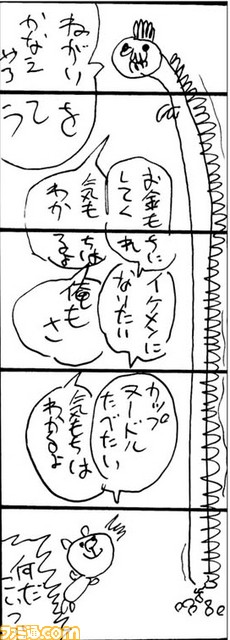 ねがいを
かなえて
やろう
お金もちに
してくれ
気もちは
わかるよ
イケメンに
なりたい
俺も
さ
カップ
ヌードル
たべたい
気もちは
わかるよ
何だ
こいつ
ファミ通.com